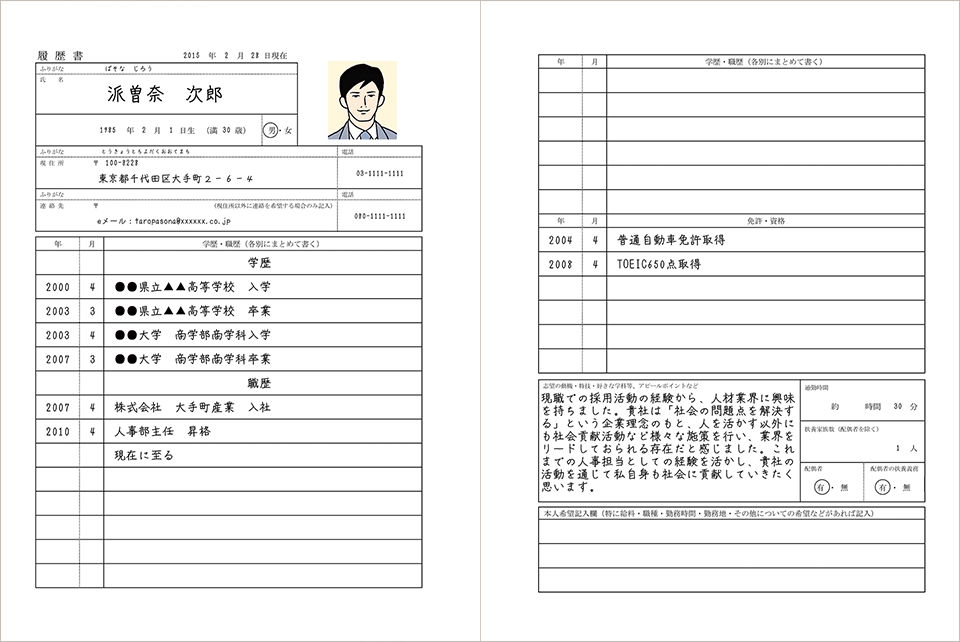 履歴書 2015 年 2 月 28 日現在
ふりがな ぱそな じろう
氏 名
派曽奈 次郎
1985 年 2 月 1 日生 (満 30 歳) 男・女
ふりがな とうきょうとちよだくおおてまち 電話
現住所 〒 100-8228
03-1111-1111
東京都千代田区大手町2-6-4
ふりがな 電話
連絡先 〒 (現住所以外に連絡を希望する場合のみ記入)
080-1111-1111
eメール:taropasona@xxxxxx.co.jp
年 月 学歴・職歴(各別にまとめて書く)
学歴
2000 4 ●●県立▲▲高等学校 入学
2003 3 ●●県立▲▲高等学校 卒業
2003 4 ●●大学 商学部商学科入学
2007 3 ●●大学 商学部商学科卒業
職歴
2007 4 株式会社 大手町産業 入社
2010 4 人事部主任 昇格
現在に至る
年 月 学歴・職歴(各別にまとめて書く)
年 月 免許・資格
2004 4 普通自動車免許取得
2008 4 TOEIC650点取得
志望の動機・特技・好きな学科等、アピールポイントなど
現職での採用活動の経験から、人材業界に興味
を持ちました。貴社は「社会の問題点を解決す
る」という企業理念のもと、人を活かす以外に
も社会貢献活動など様々な施策を行い、業界を
リードしておられる存在だと感じました。これ
までの人事担当としての経験を活かし、貴社の
活動を通じて私自身も社会に貢献していきたく
思います。
通勤時間
約 時間 30 分
扶養家族数(配偶者を除く)
1 人
配偶者 配偶者の扶養義務
有・無 有・無
本人希望記入欄(特に給料・職種・勤務時間・勤務地・その他についての希望などがあれば記入)